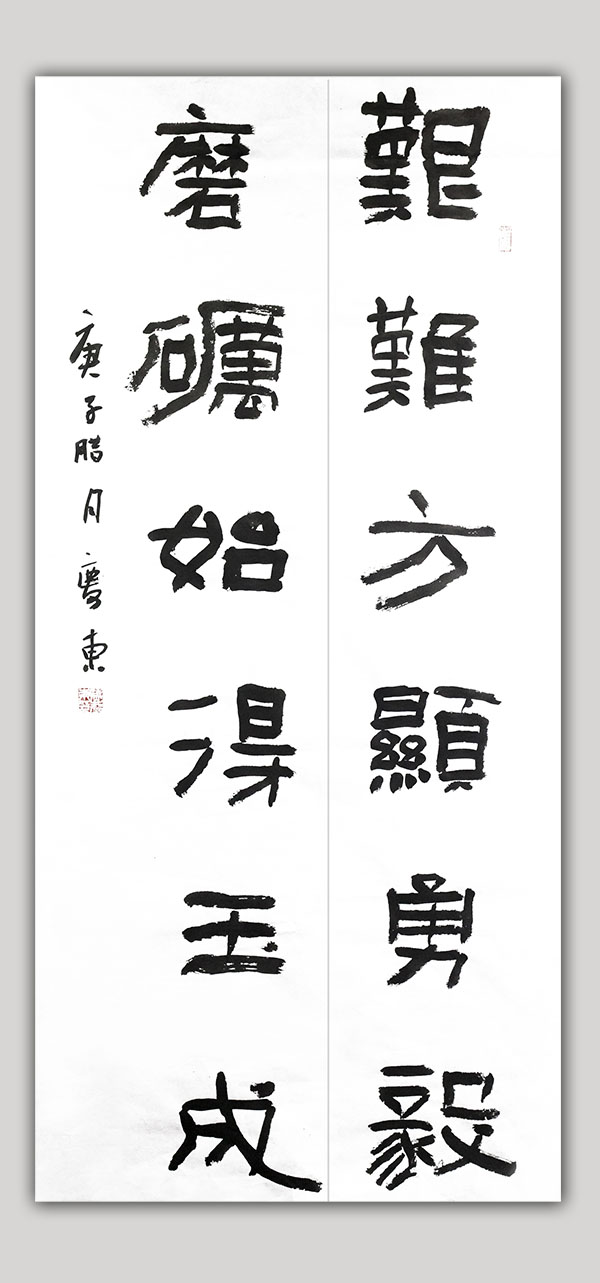 艱難方顯勇毅
磨礪始得玉成
庚子腊月慶東